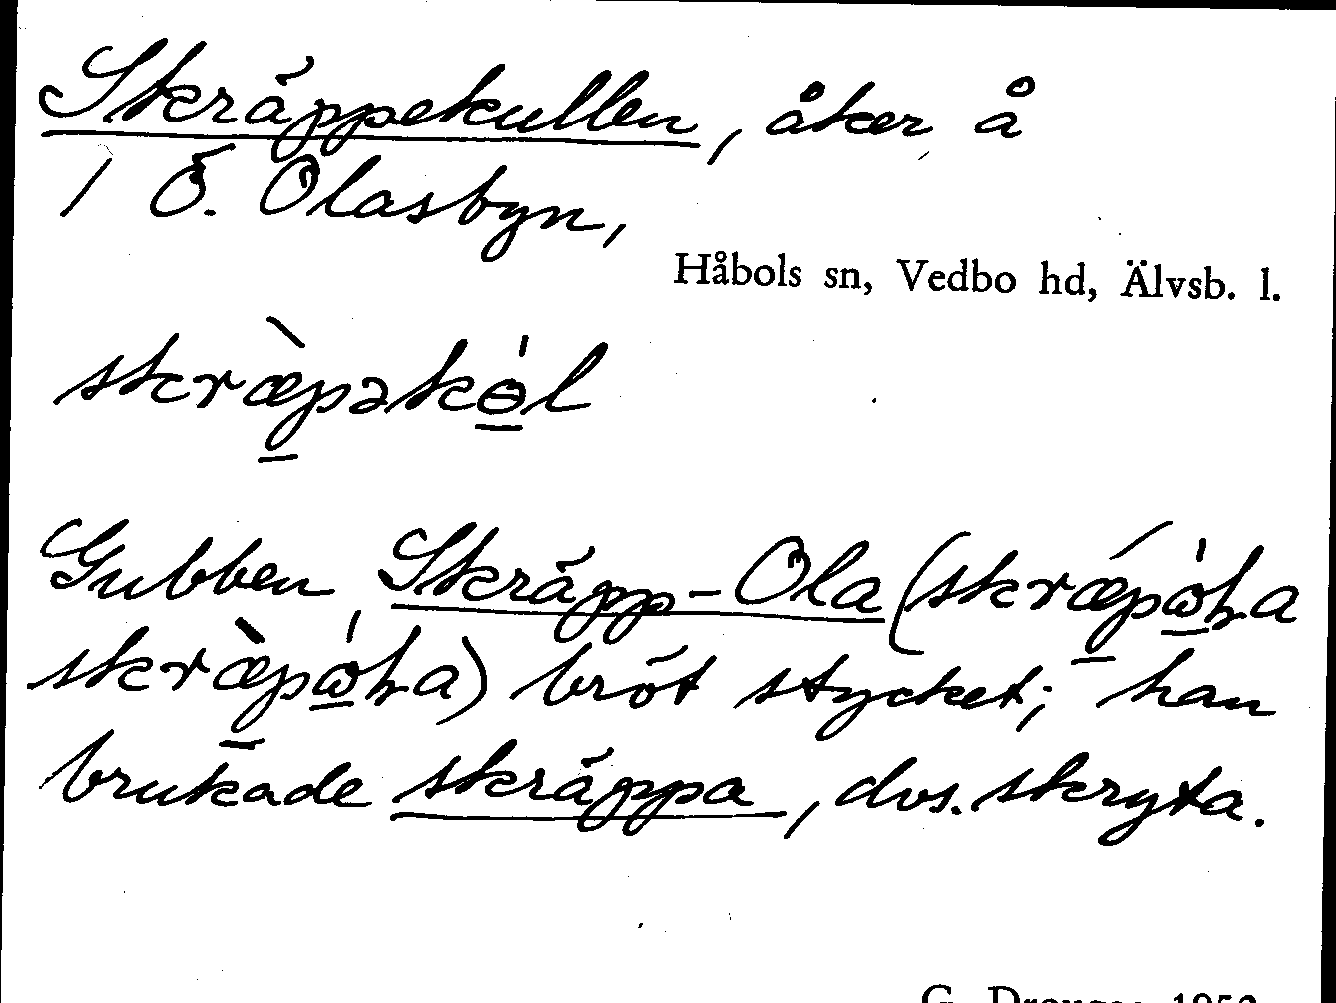 Skräppekullen, åker å
1 Ö. Olasbyn,
Håbols sn, Vedbo hd, Älvsb. l.
skræ̀pəkɵ́l
Gubben Skräpp-Ola (skrǽpώɫa
skræ̀pώɫa) bröt stycket; han
brukade skräppa, dvs. skryta.